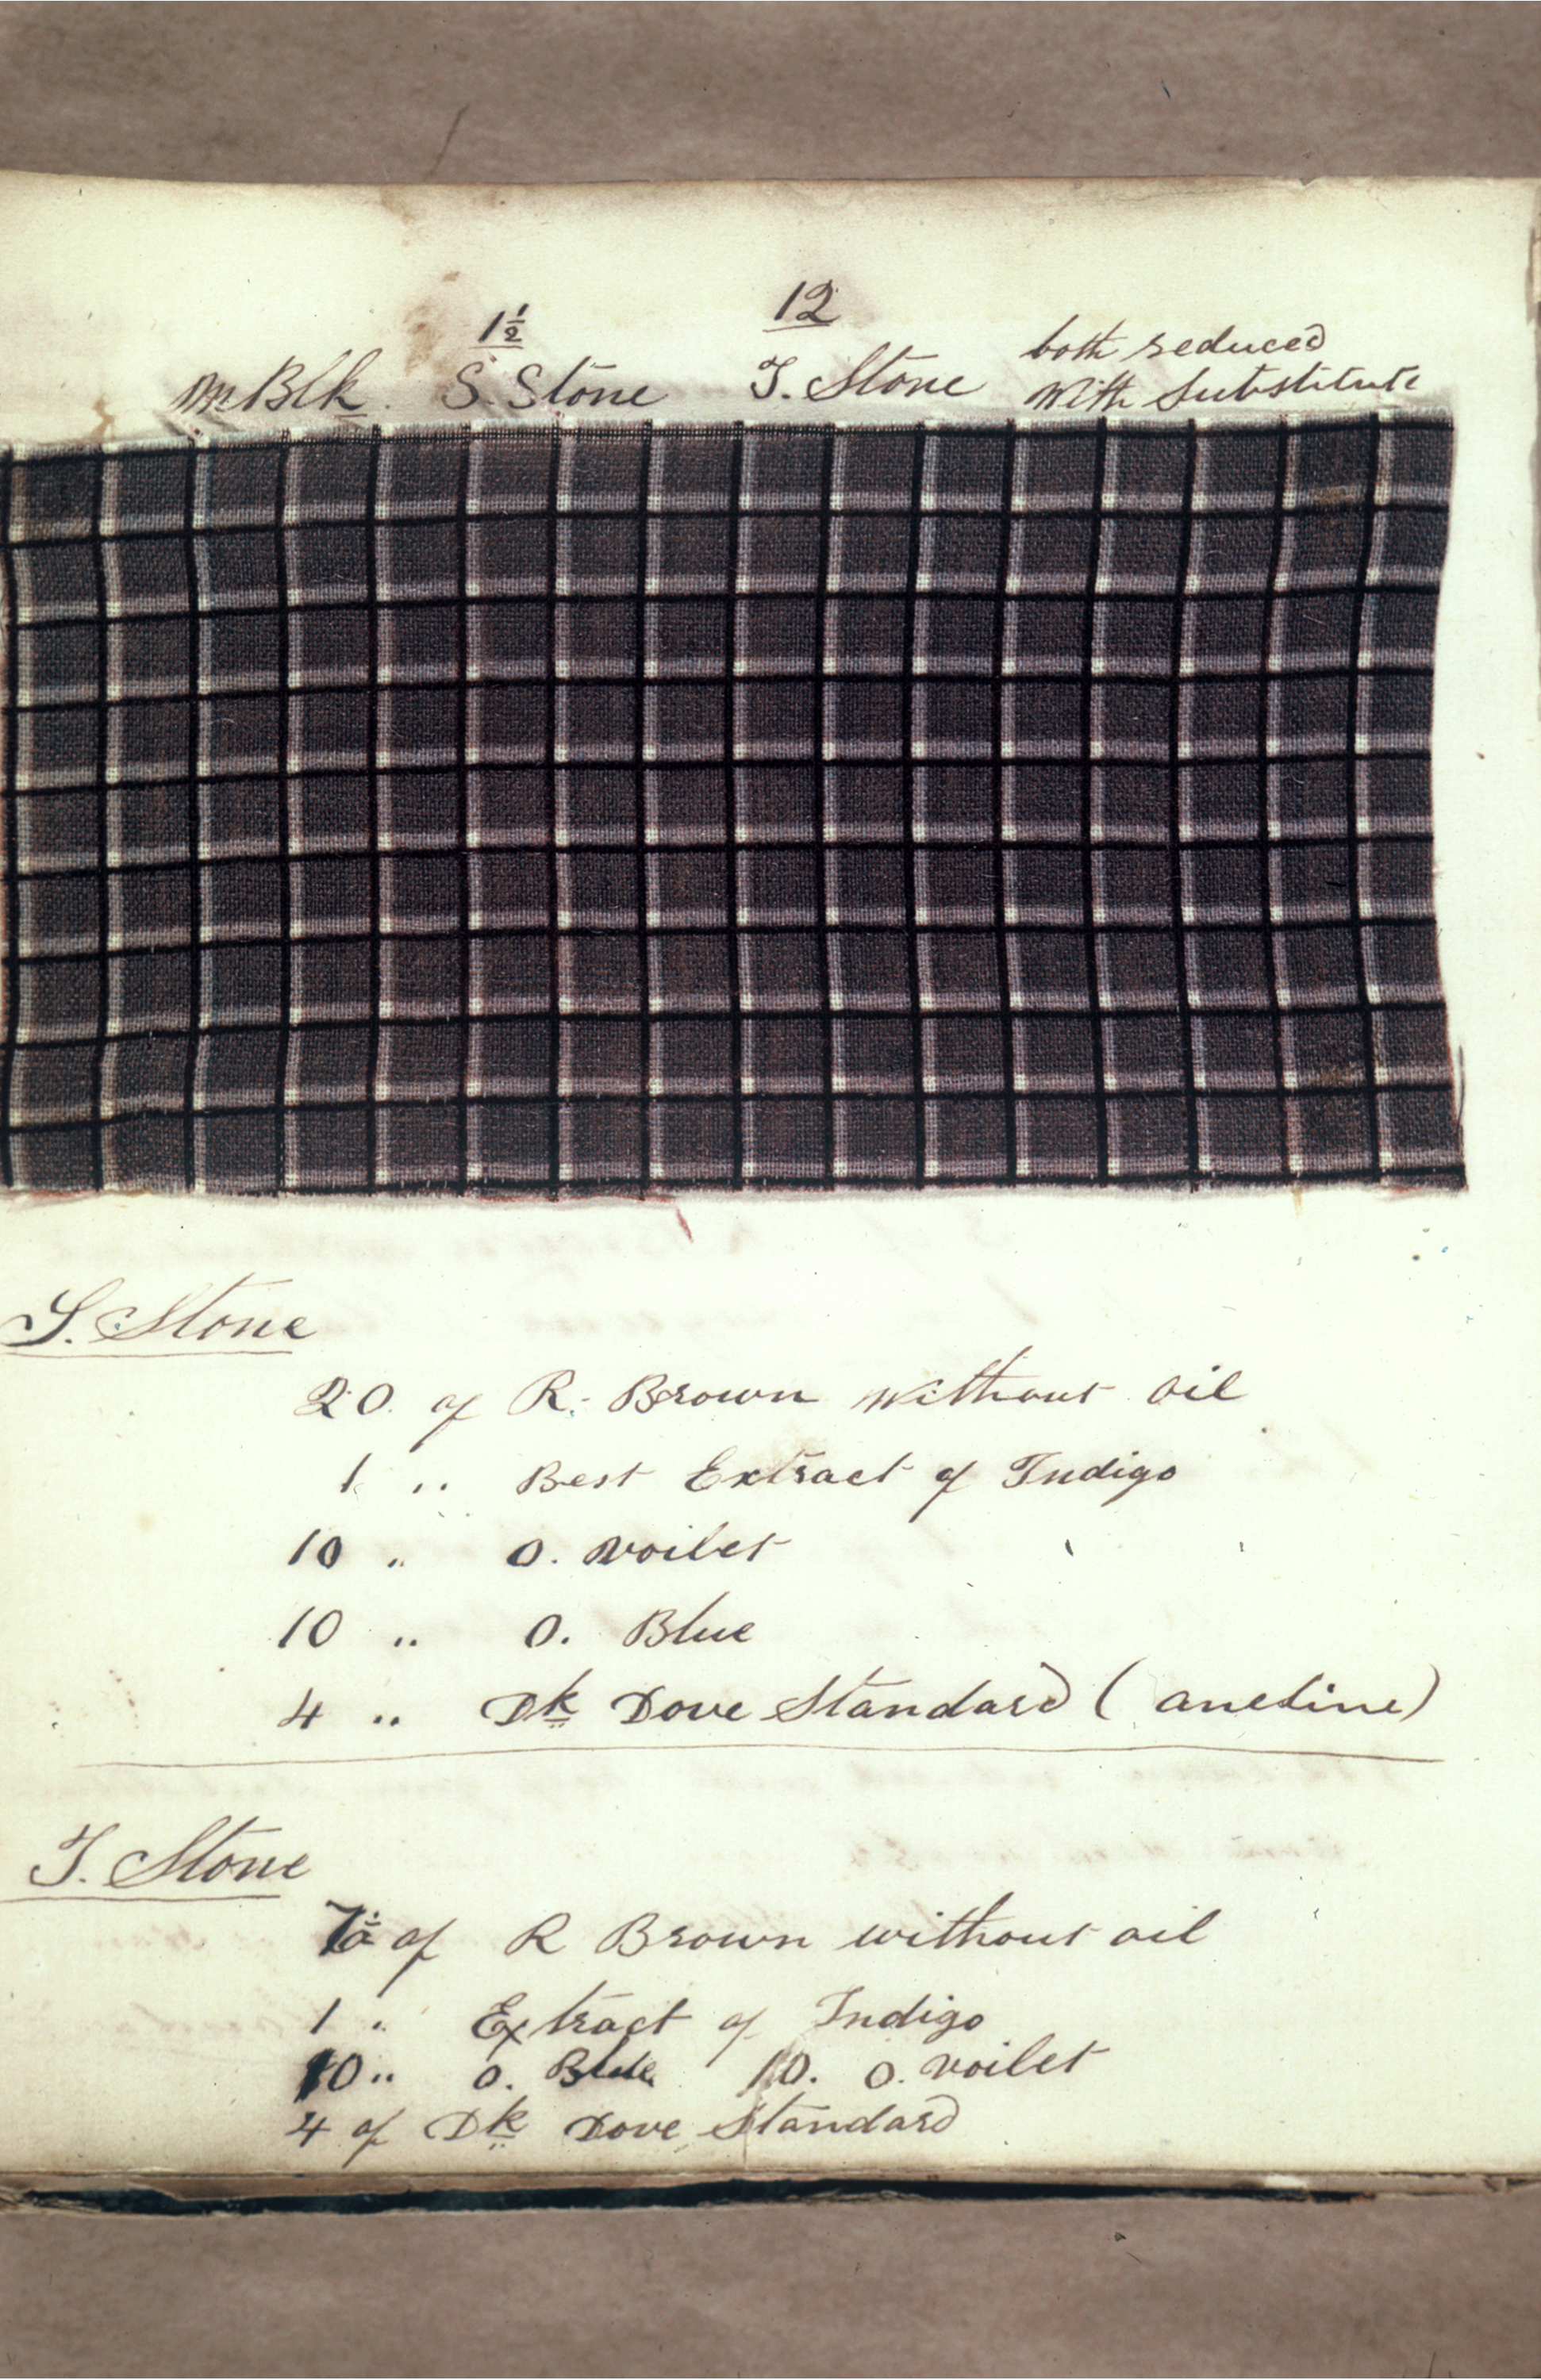 1½ 12
both reduced
M Blk. S. Stone T. Stone With Substitute
S. Stone
20 of R. Brown without oil
1 " Best Extract of Indigo
10 " O. voilet
10 " O. Blue
4 " Dk Dove Standard (aneline)
T. Stone
of R Brown without oil
1 " Extract of Indigo
10 " O. Blue 10. O. voilet
4 of Dk Dove Standard